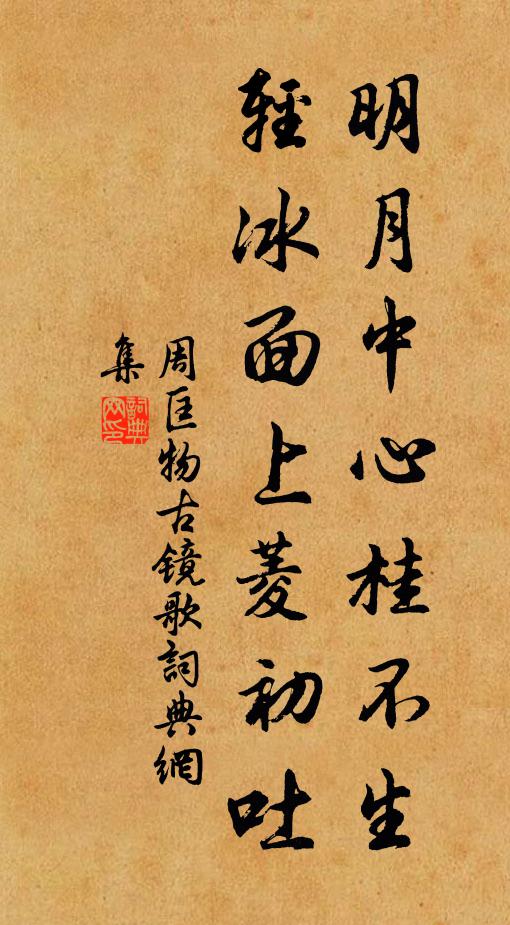 明月中心桂不生
輕冰面上菱初吐
周匡物古鏡歌詞典網
集
詞典
网印